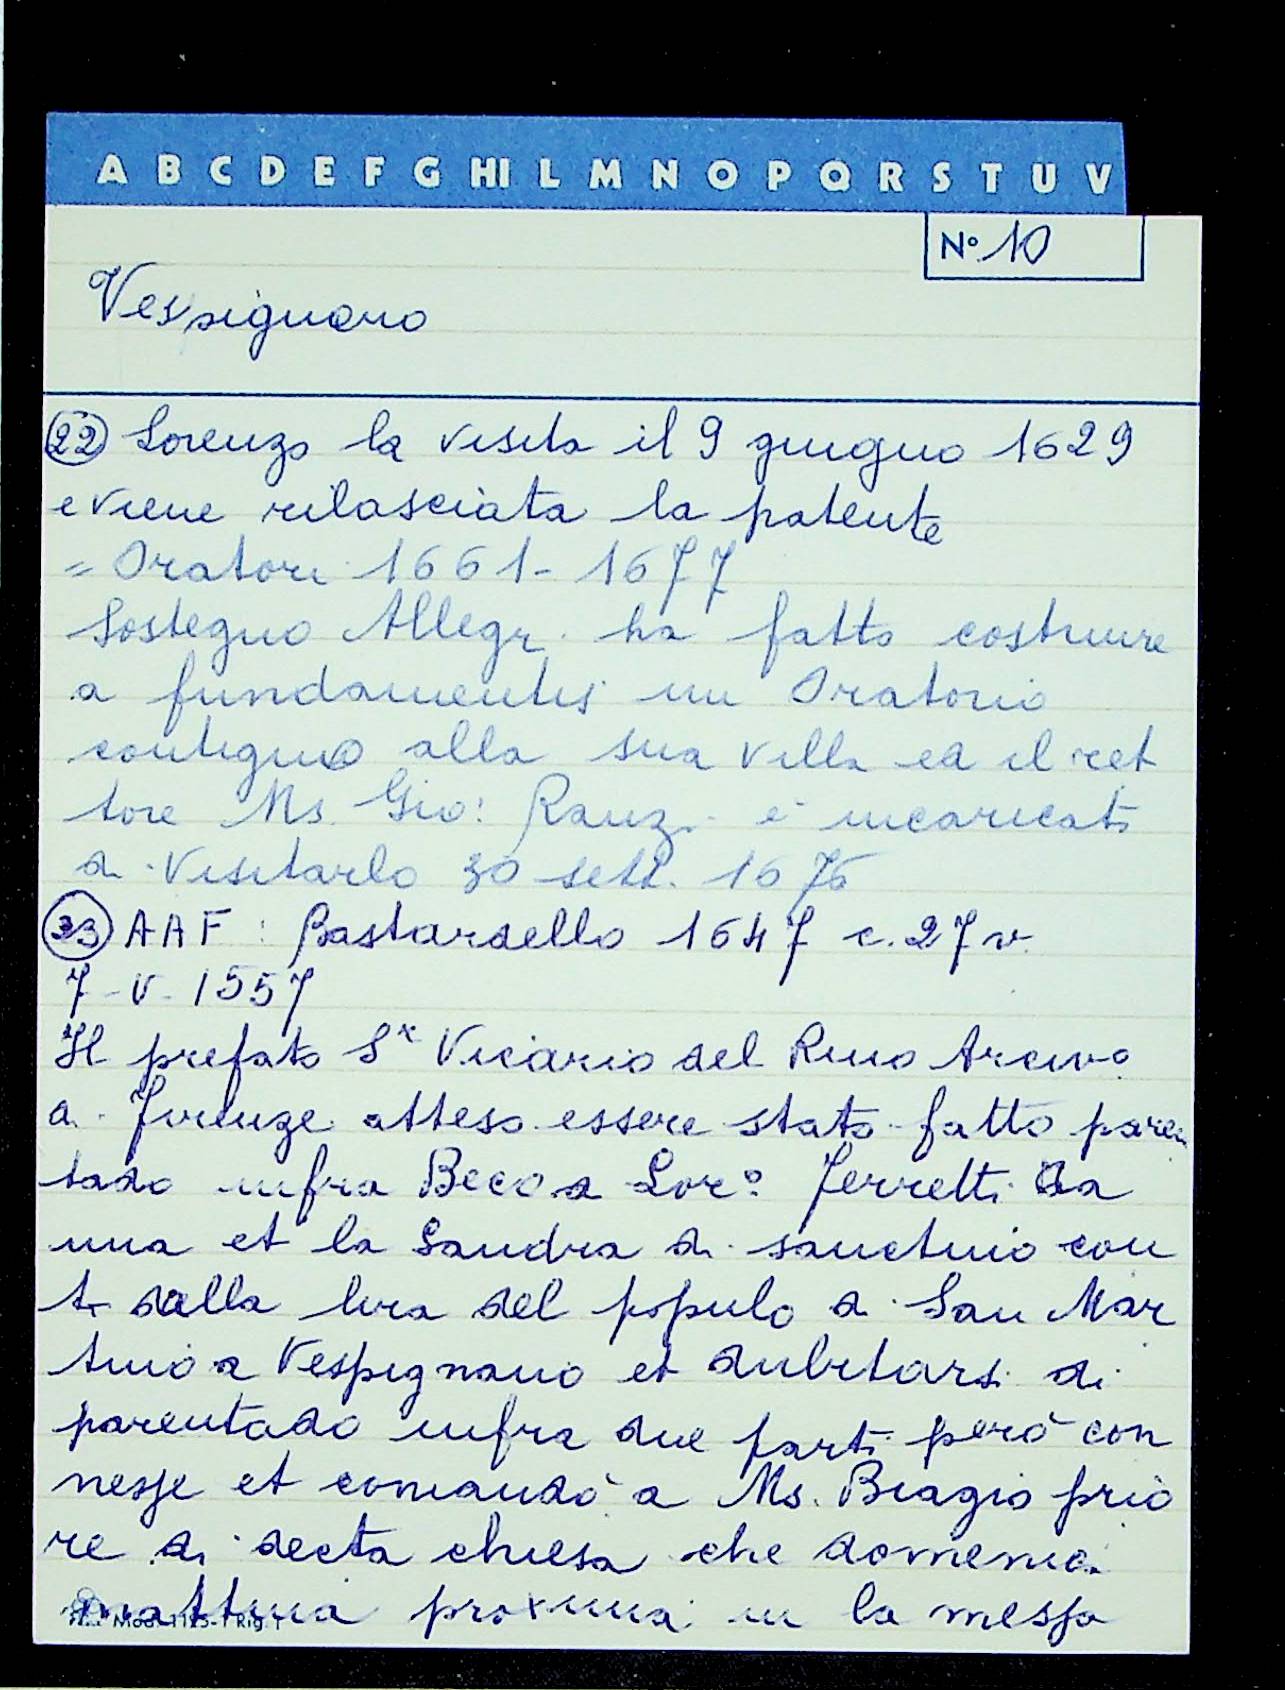 A B C D E F G HI L M N O P Q R S T U V
N° 10
Vespignano
22 Lorenzo la visita il 9 giugno 1629
e viene rilasciata la patente
= Oratori 1661-1677
Sostegno Allegri ha fatto costruire
a fundamentis un Oratorio
contiguo alla sua villa ed il ret
tore Ms. Gio: Ranzi è incaricato
di visitarlo 30 sett. 1676
23 AAF: Bastardello 1647 c. 27 v.
7-V-1557
Il prefato Sr Vicario del Rmo Arcivo
di Firenze atteso essere stato fatto paren
tado infra Beco di Lor° Ferretti da
una et la Sandra di sanctino con
ti dalla lira del populo di San Mar
tino a Vespignano et dubitarsi di
parentado infra due parti però con
nesse et comandò a Ms. Biagio prio
re di decta chiesa che domenica
mattina proxima in la messa
Mod. 1125-1 Rig. 1